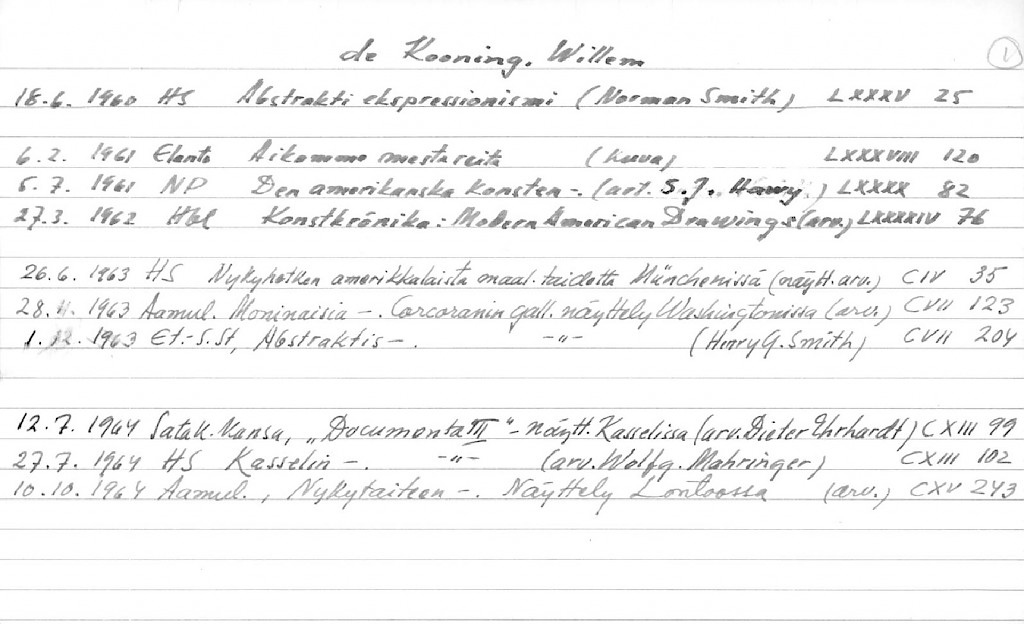 de Kooning, Willem 1
18.6. 1960 HS Abstrakti ekspressionismi (Norman Smith) LXXXV 25
6.2. 1961 Elanto Aikamme mestareita (kuva) LXXXVIII 120
5.7. 1961 NP Den amerikanska konsten -. (art. S.J. ) LXXXX 82
27.3. 1962 Hbl Konstkrönika: Modern American Drawings (arv.) LXXXXIV 76
26.6. 1963 HS Nykyhetken amerikkalaista maal.taidetta Münchenissä (näytt.arv.) CIV 35
28.11. 1963 Aamul. Moninaisia -. Corcoranin gall. näyttely Washingtonissa (arv.) CVII 123
1.12. 1963 Et.-S.St, Abstraktis -. -"- (Henry G. Smith) CVII 204
12.7. 1964 Satak.Kansa, „Documenta III" - näytt. Kasselissa (arv. Dieter Ehrhardt) CXIII 99
27.7. 1964 HS Kasselin -. -"- (arv. Wolfg. Mahringer) CXIII 102
10.10. 1964 Aamul., Nykytaiteen -. Näyttely Lontoossa (arv.) CXV 243